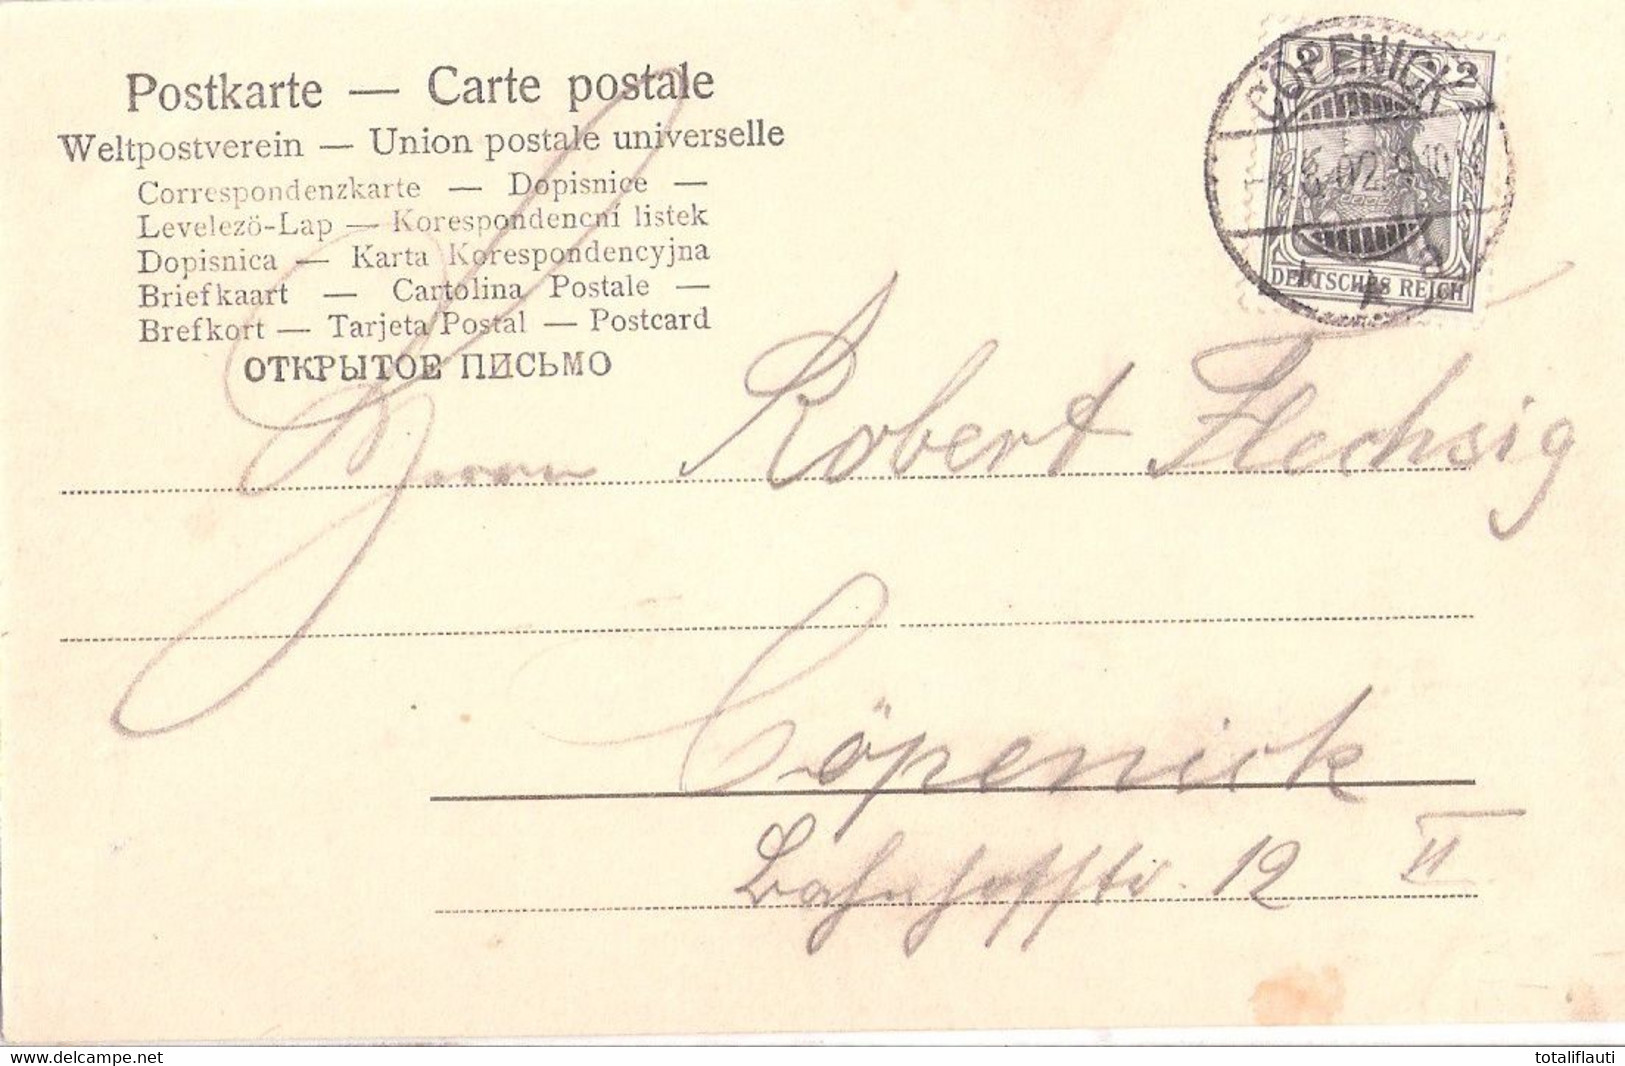 Postkarte — Carte postale
Weltpostverein — Union postale universelle
Correspondenzkarte — Dopisnice —
Levelezö-Lap — Korespondencní listek
Dopisnica — Karta Korespondencyjna
Briefkaart — Cartolina Postale —
Brefkort — Tarjeta Postal — Postcard
ОТКРЫТОЕ ПИСЬМО
CÖPENICK
2 2
DEUTSCHES REICH
Herrn Robert Flechsig
Cöpenick
Bahnhofstr. 12 II
www.delcampe.net
totaliflauti